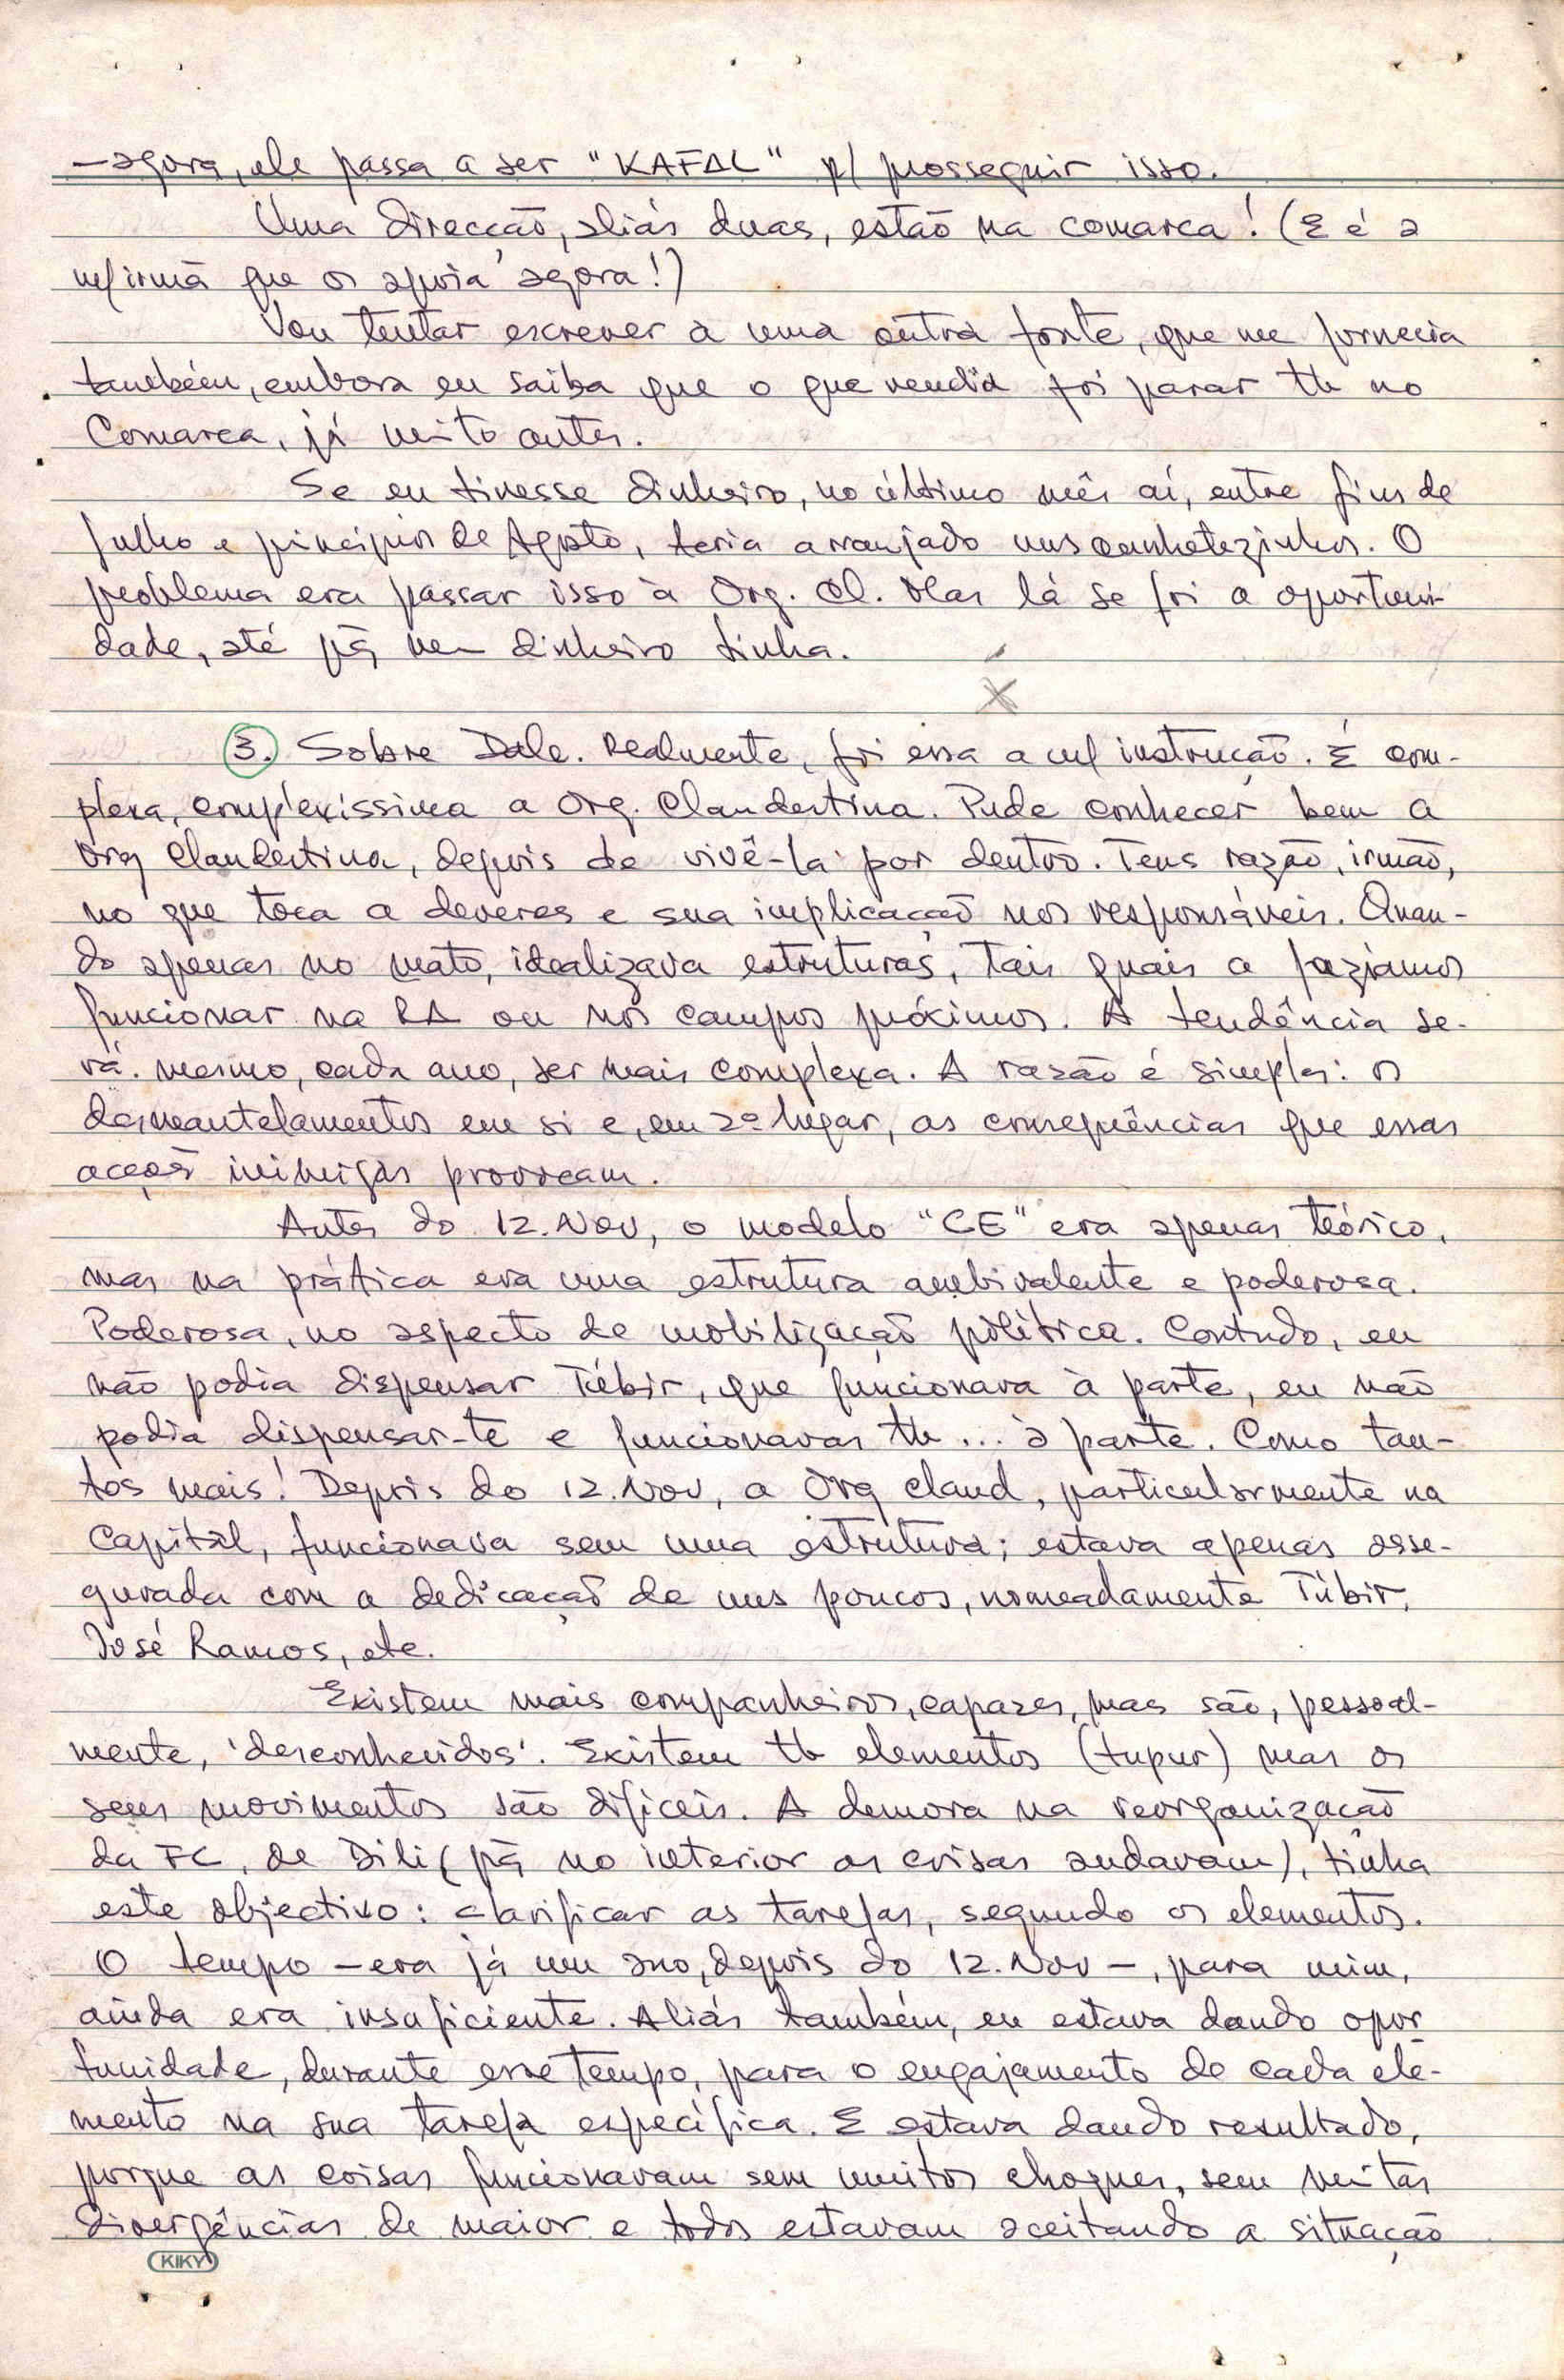 — agora, ele passa a ser "KAFAL" p/ prosseguir isso.
Uma Direcção, aliás duas, estão na comarca! (E é a
m/ irmã que os apoia agora!)
Vou tentar escrever a uma outra fonte, que me fornecia
também, embora eu saiba que o que vendia foi parar tb no
Comarca, já muito antes.
Se eu tivesse dinheiro, no último mês aí, entre fins de
Julho e princípios de Agosto, teria arranjado uns cunhetezinhos. O
problema era passar isso à Org. Cl. Mas lá se foi a oportuni-
dade, até pq nem dinheiro tinha.
x
3. Sobre Dale. Realmente, foi essa a m/ instrução. É com-
plexa, complexíssima a Org. Clandestina. Pude conhecer bem a
Org Clandestina, depois de vivê-la por dentro. Tens razão, irmão,
no que toca a deveres e sua implicação nos responsáveis. Quan-
do apenas no mato, idealizava estruturas, tais quais a fazíamos
funcionar na RA ou nos campos próximos. A tendência se-
rá mesmo, cada ano, ser mais complexa. A razão é simples: os
desmantelamentos em si e, em 2º lugar, as consequências que essas
acções inimigas provocam.
Antes do 12.Nov, o modelo "CE" era apenas teórico,
mas na prática era uma estrutura ambivalente e poderosa.
Poderosa, no aspecto de mobilização política. Contudo, eu
não podia dispensar Túbir, que funcionava à parte, eu não
podia dispensar-te e funcionavas tb ... à parte. Como tan-
tos mais! Depois do 12.Nov, a Org Cland, particularmente na
Capital, funcionava sem uma estrutura; estava apenas asse-
gurada com a dedicação de uns poucos, nomeadamente Túbir,
José Ramos, etc.
Existem mais companheiros, capazes, mas são, pessoal-
mente, 'desconhecidos'. Existem tb elementos (tupur) mas os
seus movimentos são difíceis. A demora na reorganização
da FC, de Dili (pq no interior as coisas andavam), tinha
este objectivo: clarificar as tarefas, segundo os elementos.
O tempo — era já um ano, depois do 12.Nov —, para mim,
ainda era insuficiente. Aliás também, eu estava dando opor-
tunidade, durante esse tempo, para o engajamento de cada ele-
mento na sua tarefa específica. E estava dando resultado,
porque as coisas funcionavam sem muitos choques, sem muitas
divergências de maior e todos estavam aceitando a situação
KIKY